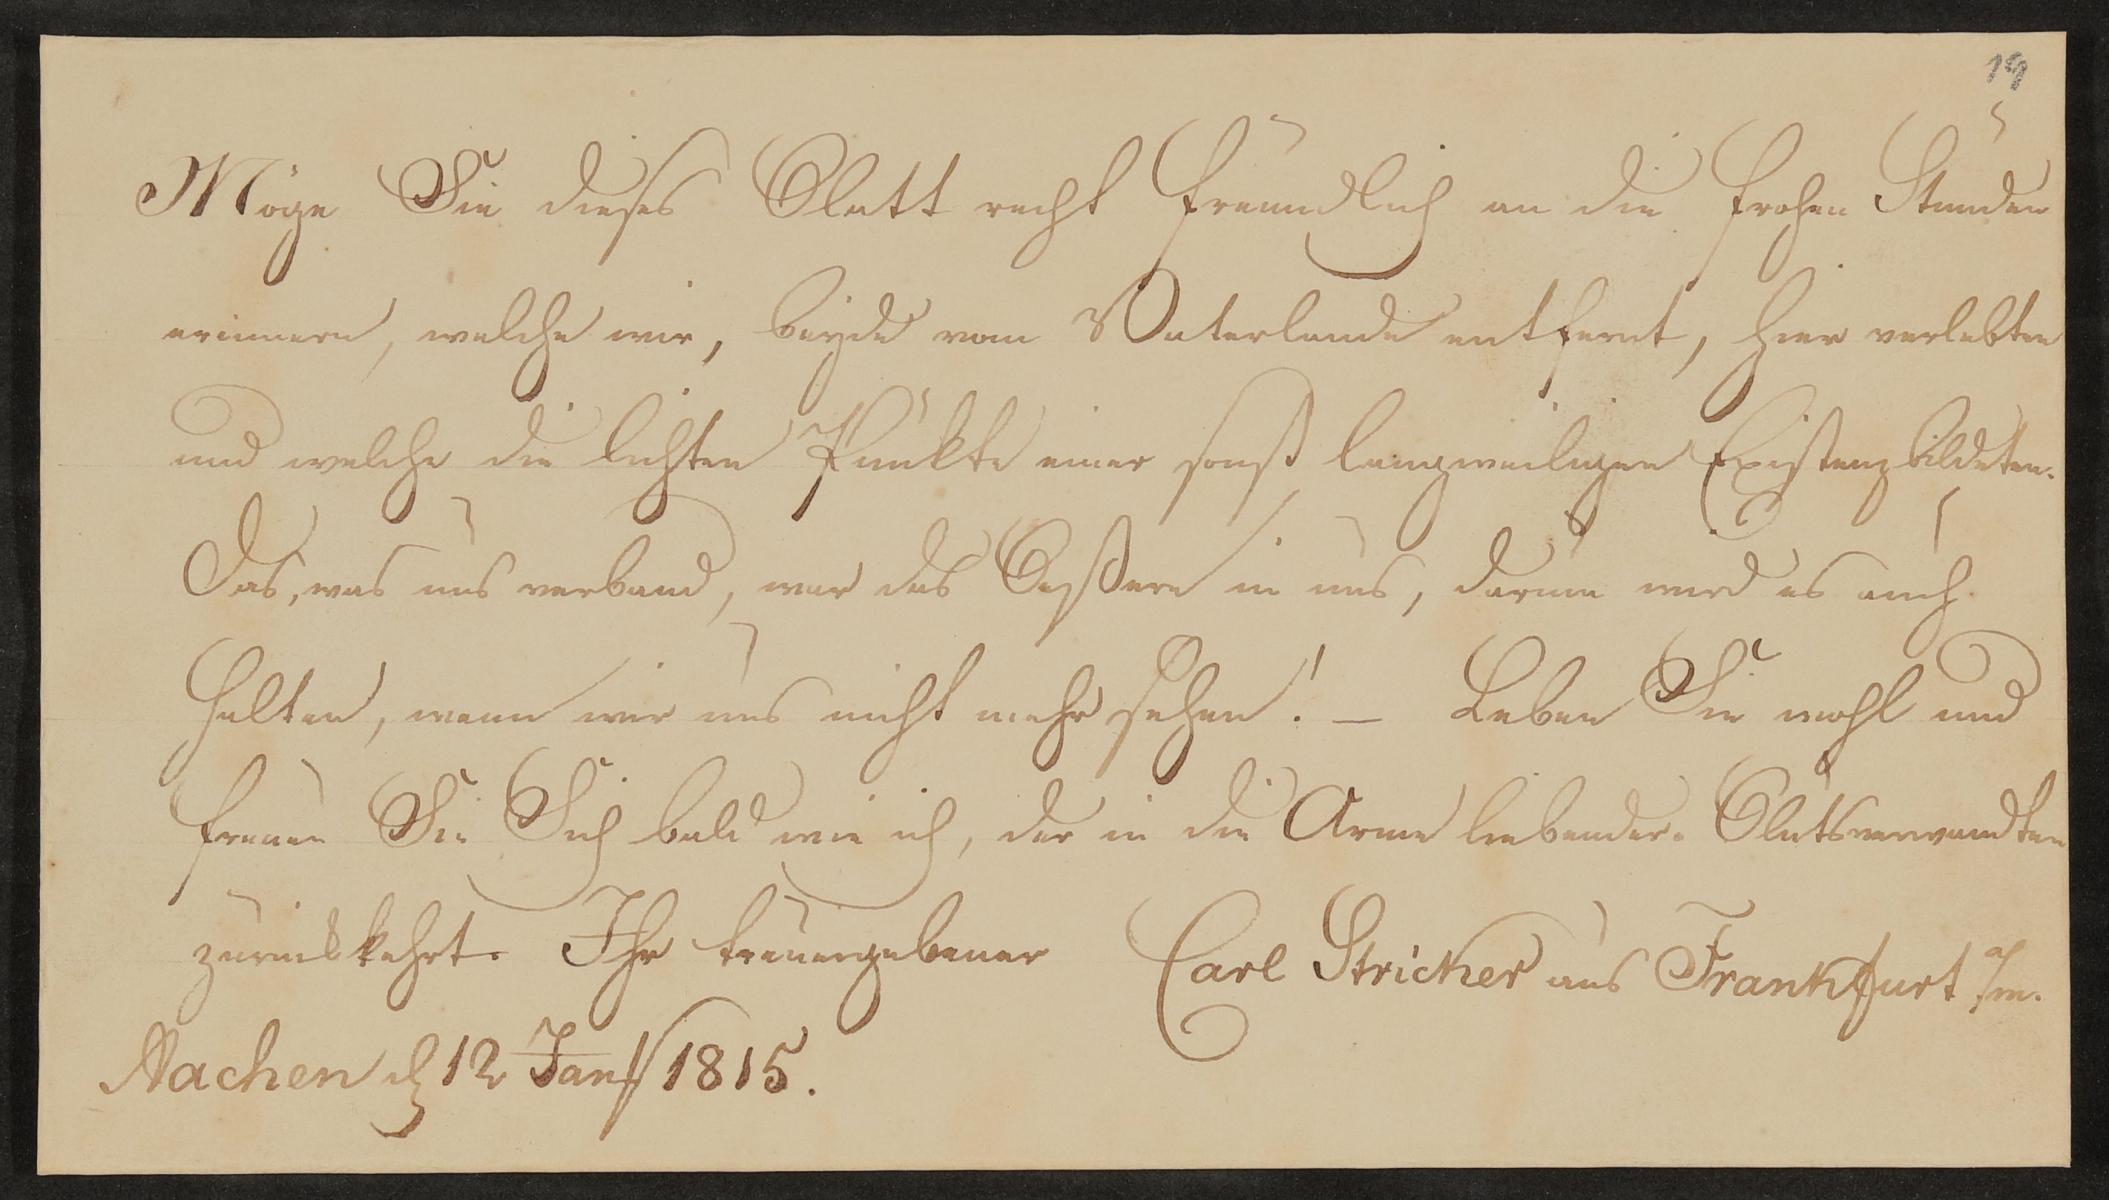 19
Möge Sie dieses Blatt recht freundlich an die frohen Stunden
erinnern, welche wir, beyde vom Vaterlande entfernt, hier verlebten
und welche die lichten Punkte einer sonst langweiligen Existenz bildeten.
Das, was uns verband, war das Beßere in uns, darum wird es auch
halten, wenn wir uns nicht mehr sehen! — Leben Sie wohl und
freuen Sie Sich bald wie ich, der in die Arme liebender Blutsverwandten
zurückkehrt. Ihr treuergebener Carl Stricker aus Frankfurt a/m.
Aachen d 12 Jan 1815.